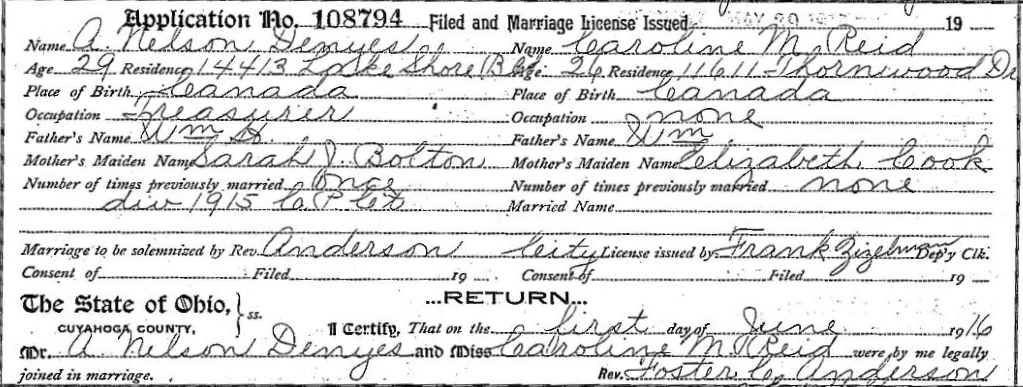 Application No. 108794 Filed and Marriage License Issued MAY 29 19
Name A. Nelson Denyes Name Caroline M. Reid
Age 29 Residence 14413 Lake Shore Blvd Age 26 Residence 11611 Thornwood Dr
Place of Birth Canada Place of Birth Canada
Occupation Treasurer Occupation none
Father's Name Wm H. Father's Name Wm
Mother's Maiden Name Sarah J. Bolton Mother's Maiden Name Elizabeth Cook
Number of times previously married Once Number of times previously married none
div 1915 C. P. Ct Married Name
Marriage to be solemnized by Rev. Anderson City License issued by Frank Zizelman Dep'y Clk.
Consent of Filed 19 Consent of Filed 19
The State of Ohio, } ss. ...RETURN...
CUYAHOGA COUNTY, I Certify, That on the first day of June 1916
Mr. A. Nelson Denyes and Miss Caroline M. Reid were by me legally
joined in marriage. Rev. Foster C. Anderson